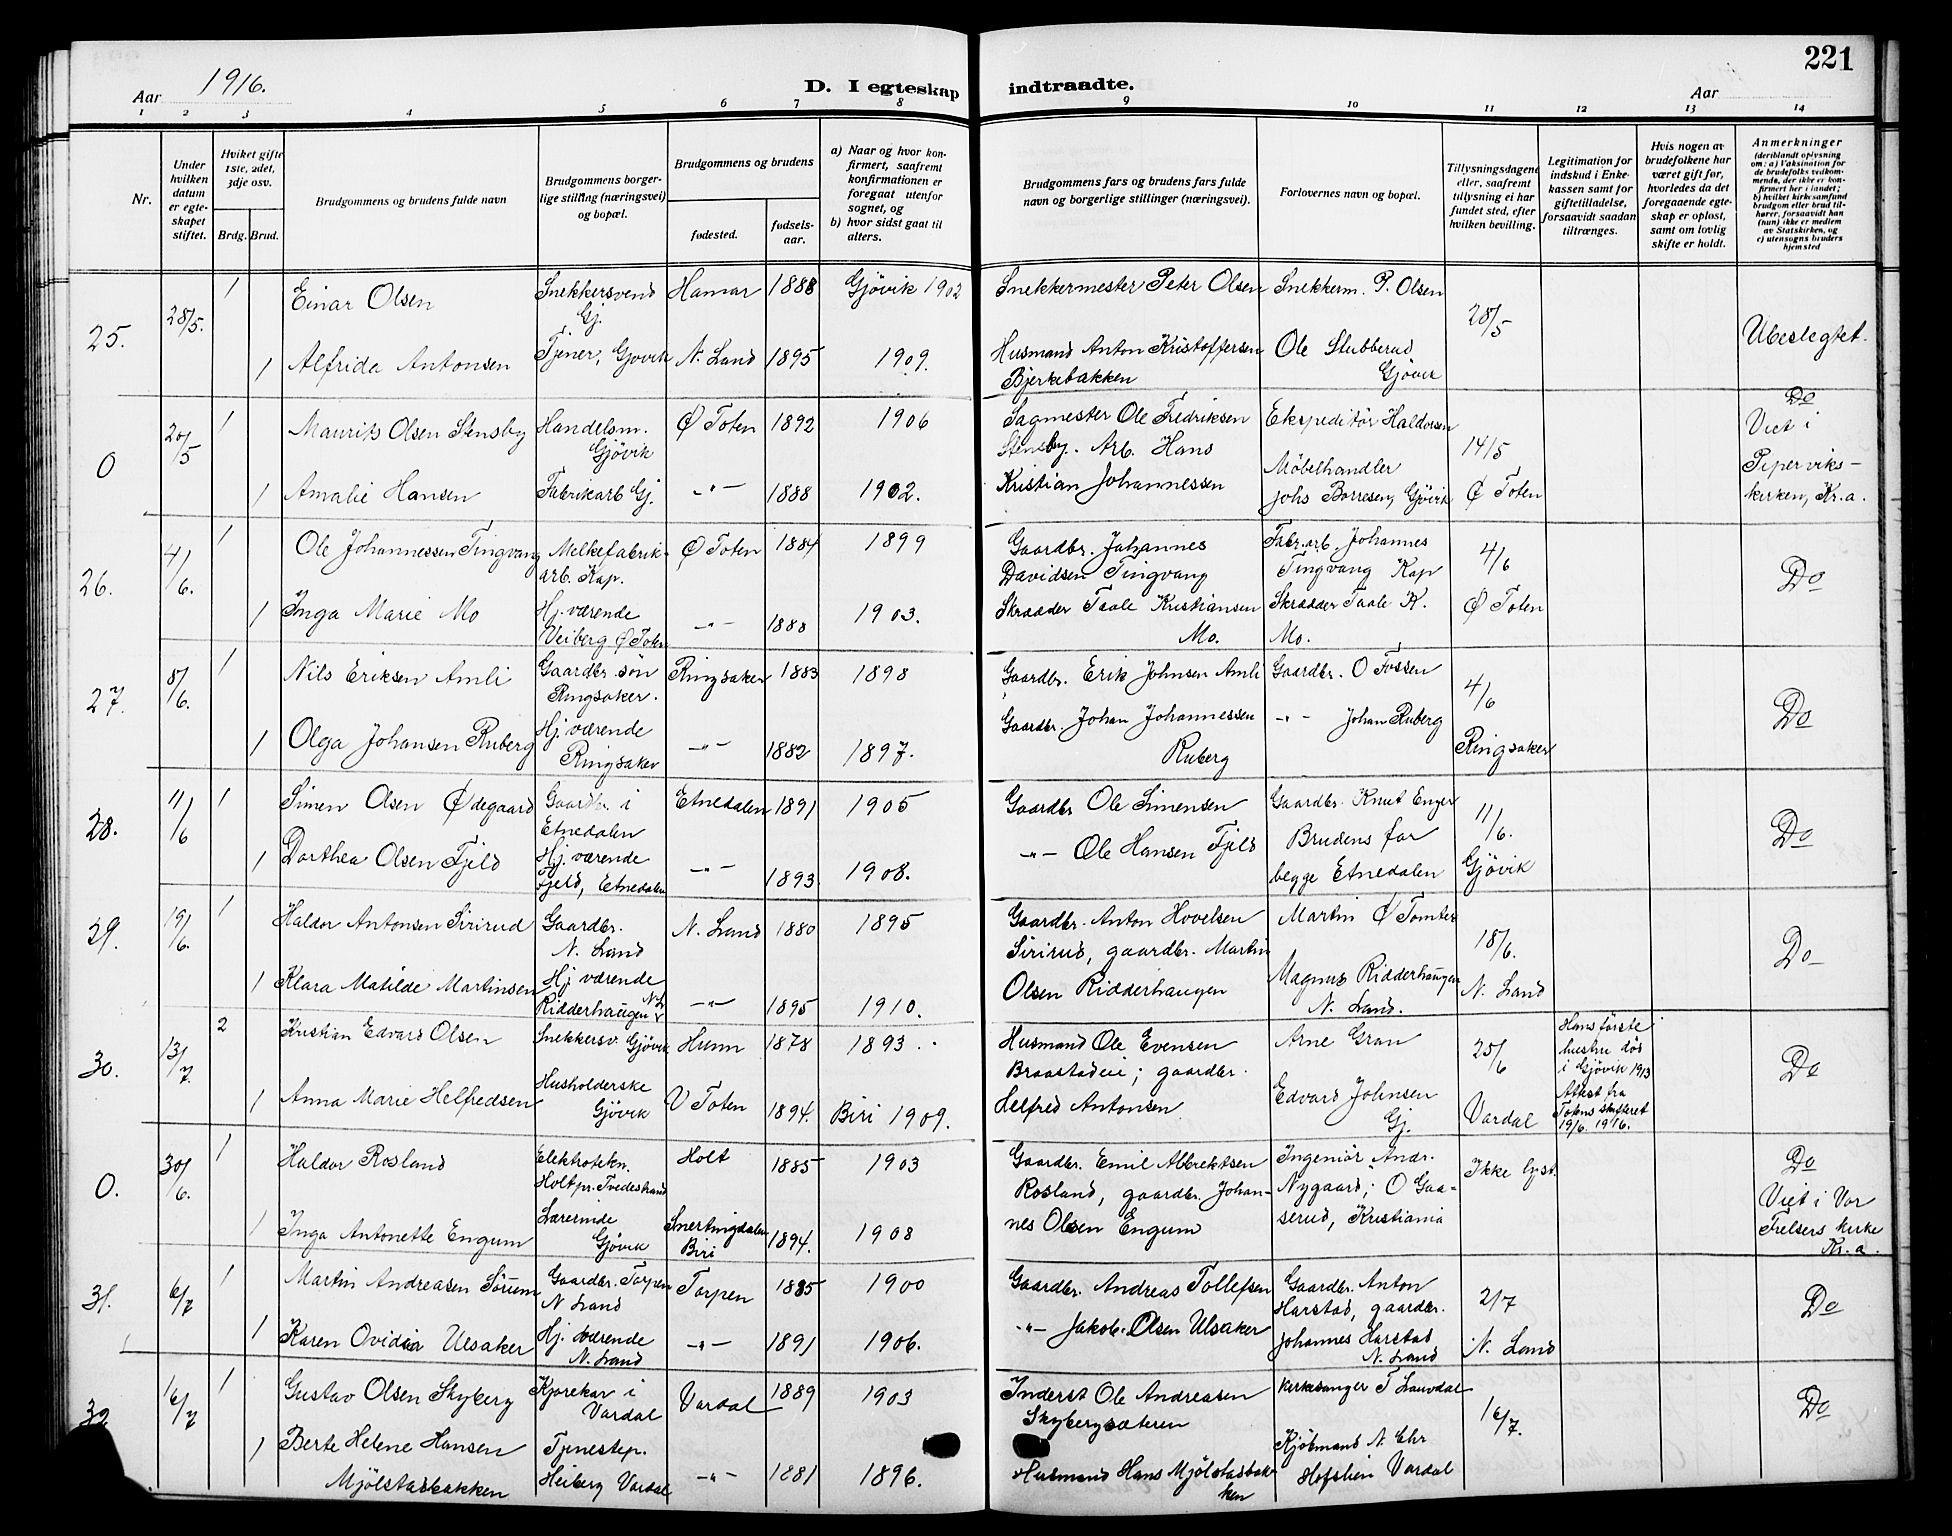 221
Aar 1916.
D. I egteskap indtraadte.
Aar
1 2 3 4 5 6 7 8 9 10 11 12 13 14
Nr.
Under hvilken datum er egteskapet stiftet.
Hviket gifte 1ste, 2det, 3dje osv.
Brdg. Brud.
Brudgommens og brudens fulde navn
Brudgommens borgerlige stilling (næringsvei) og bopæl.
Brudgommens og brudens
fødested.
fødselsaar.
a) Naar og hvor konfirmert, saafremt konfirmationen er foregaat utenfor sognet, og
b) hvor sidst gaat til alters.
Brudgommens fars og brudens fars fulde navn og borgerlige stillinger (næringsvei).
Forlovernes navn og bopæl.
Tillysningsdagene eller, saafremt tillysning ei har fundet sted, efter hvilken bevilling.
Legitimation for indskud i Enkekassen samt for giftetilladelse, forsaavidt saadan tiltrænges.
Hvis nogen av brudefolkene har været gift før, hvorledes da det foregaaende egteskap er opløst, samt om lovlig skifte er holdt.
Anmerkninger
(deriblandt oplysning om: a) Vaksination for de brudefolks vedkommende, der ikke er konfirmert her i landet;
b) hvilket kirkesamfund brudgom eller brud tilhører, forsaavidt han (hun) ikke er medlem av Statskirken, og
c) utensogns bruders hjemsted
25. 28/5. 1 Einar Olsen Snekkersvend Gj. Hamar 1888 Gjøvik 1902 Snekkermester Peter Olsen Snekkerm. P. Olsen 28/5 Ubeslegtet.
1 Alfrida Antonsen Tjener, Gjøvik N. Land 1895 1909. Husmand Anton Kristoffersen Bjerkebakken Ole Stubberud Gjøvik
0 20/5 1 Maurits Olsen Stensby Handelsm. Gjøvik Ø Toten 1892 1906 Sagmester Ole Fredriksen Stensby. Arb. Hans Ekspeditør Haldorsen 14/5 Do Viet i
1 Amalie Hansen Fabrikarb Gj. -"- 1888 1902. Kristian Johannessen Møbelhandler Johs Borresen, Gjøvik Ø Toten Piperviks-kirken, Kr.a.
26. 4/6. 1 Ole Johannessen Tingvang Melkefabrikarb. Kap. Ø Toten 1884 1899 Gaardbr. Johannes Davidsen Tingvang Fabr.arb. Johannes Tingvang Kap 4/6 Do
1 Inga Marie Mo Hj. værende Veiberg Ø Toten -"- 1888 1903. Skrædder Taale Kristiansen Mo. Skrædder Taale K. Mo. Ø Toten
27. 8/6. 1 Nils Eriksen Amli Gaardbr. søn Ringsaker. Ringsaker 1883 1898 Gaardbr. Erik Johnsen Amli Gaardbr. O Fossen 4/6 Do
1 Olga Johansen Ruberg Hj. værende Ringsaker -"- 1882 1897. Gaardbr. Johan Johannessen Ruberg -"- Johan Ruberg Ringsaker
28. 11/6 1 Simen Olsen Ødegaard Gaardbr. i Etnedalen Etnedalen 1891 1905 Gaardbr Ole Simensen Gaardbr. Knut Enger 11/6. Do
1 Dorthea Olsen Fjeld Hj. værende Fjeld, Etnedalen -"- 1893. 1908. -"- Ole Hansen Fjeld Brudens far begge Etnedalen Gjøvik
29. 19/6. 1 Haldor Antonsen Sirirud Gaardbr. N. Land N. Land 1880 1895 Gaardbr. Anton Hovelsen Sirirud, gaardbr. Martin Martin Ø Tomter 18/6. Do
1 Klara Matilde Martinsen Hj. værende Ridderhaugen N. L -"- 1895 1910. Olsen Ridderhaugen Magnus Ridderhaugen N. Land. N. Land
30. 13/7. 2 Kristian Edvard Olsen Snekkersv. Gjøvik Hunn 1878 1893. Husmand Ole Evensen Braastadeie; gaardbr. Arne Gran 25/6 Hans første hustru død i Gjøvik 1913 Do
1 Anna Marie Helfredsen Husholderske Gjøvik V Toten 1894. Biri 1909. Helfred Antonsen Edvard Johnsen Gj. Vardal Attest fra Totens skifteret 19/6. 1916.
0. 30/6. 1 Haldor Rosland Elektrotekn. Holt pr. Tvedestrand Holt 1885 1903 Gaardbr. Emil Albrektsen Rosland, gaardbr. Johan- Ingeniør Andr. Nygaard; O Gaa- Ikke lyst. Do
1 Inga Antonette Engum Lærerinde Gjøvik Snertingdalen Biri 1894. 1908 nes Olsen Engum serud, Kristiania Viet i Vor Frelsers kirke Kr.a.
31. 6/7 1 Martin Andreasen Sørum Gaardbr. Torpen N Land Torpen 1885 1900 Gaardbr. Andreas Tollefsen Gaardbr. Anton Harstad, gaardbr. 2/7 Do
1 Karen Ovidia Ulsaker Hj. værende N. Land -"- 1891 1906. -"- Jakob Olsen Ulsaker Johannes Harstad N. Land N. Land
32 16/7 1 Gustav Olsen Skyberg Kjørekar i Vardal Vardal 1889 1903 Inderst Ole Andreasen Skybergsæteren Kirkesanger T Lauvdal 16/7. Do
1 Berte Helene Hansen Mjølstadbakken Tjenestep. Heiberg Vardal -"- 1881 1896. Husmand Hans Mjølstadbakken Kjøbmand N. Chr Hofslien Vardal